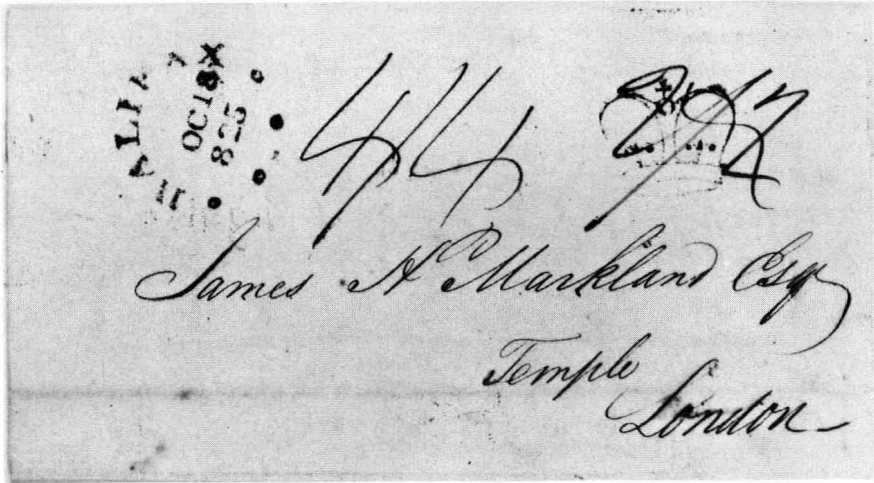 HALIFAX
OC 18
825
44
James H Markland Esqr
Temple
London